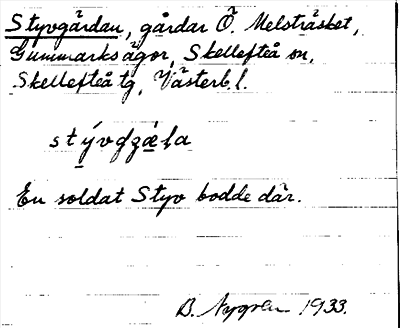 Styvgärdan, gårdar Ö. Melsträsket,
Gummarksägor, Skellefteå sn,
Skellefteå tg, Västerb. l.
En soldat Styv bodde där.
B. Nygren 1933.